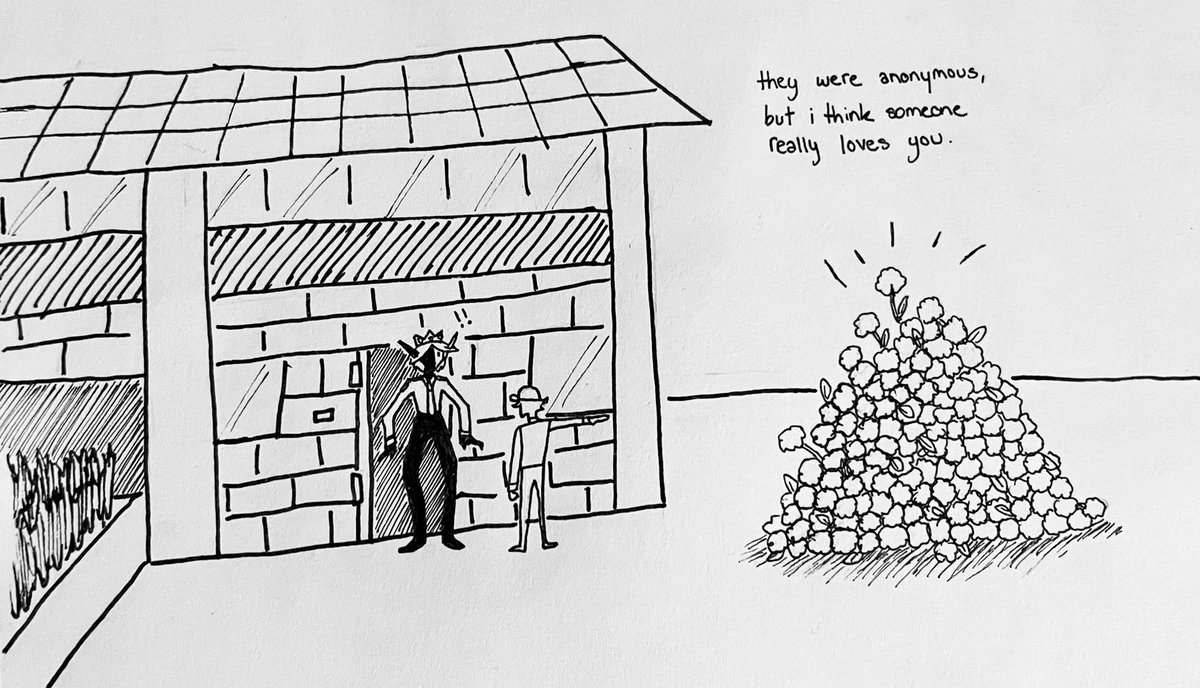 they were anonymous,
but i think someone
really loves you.
!!